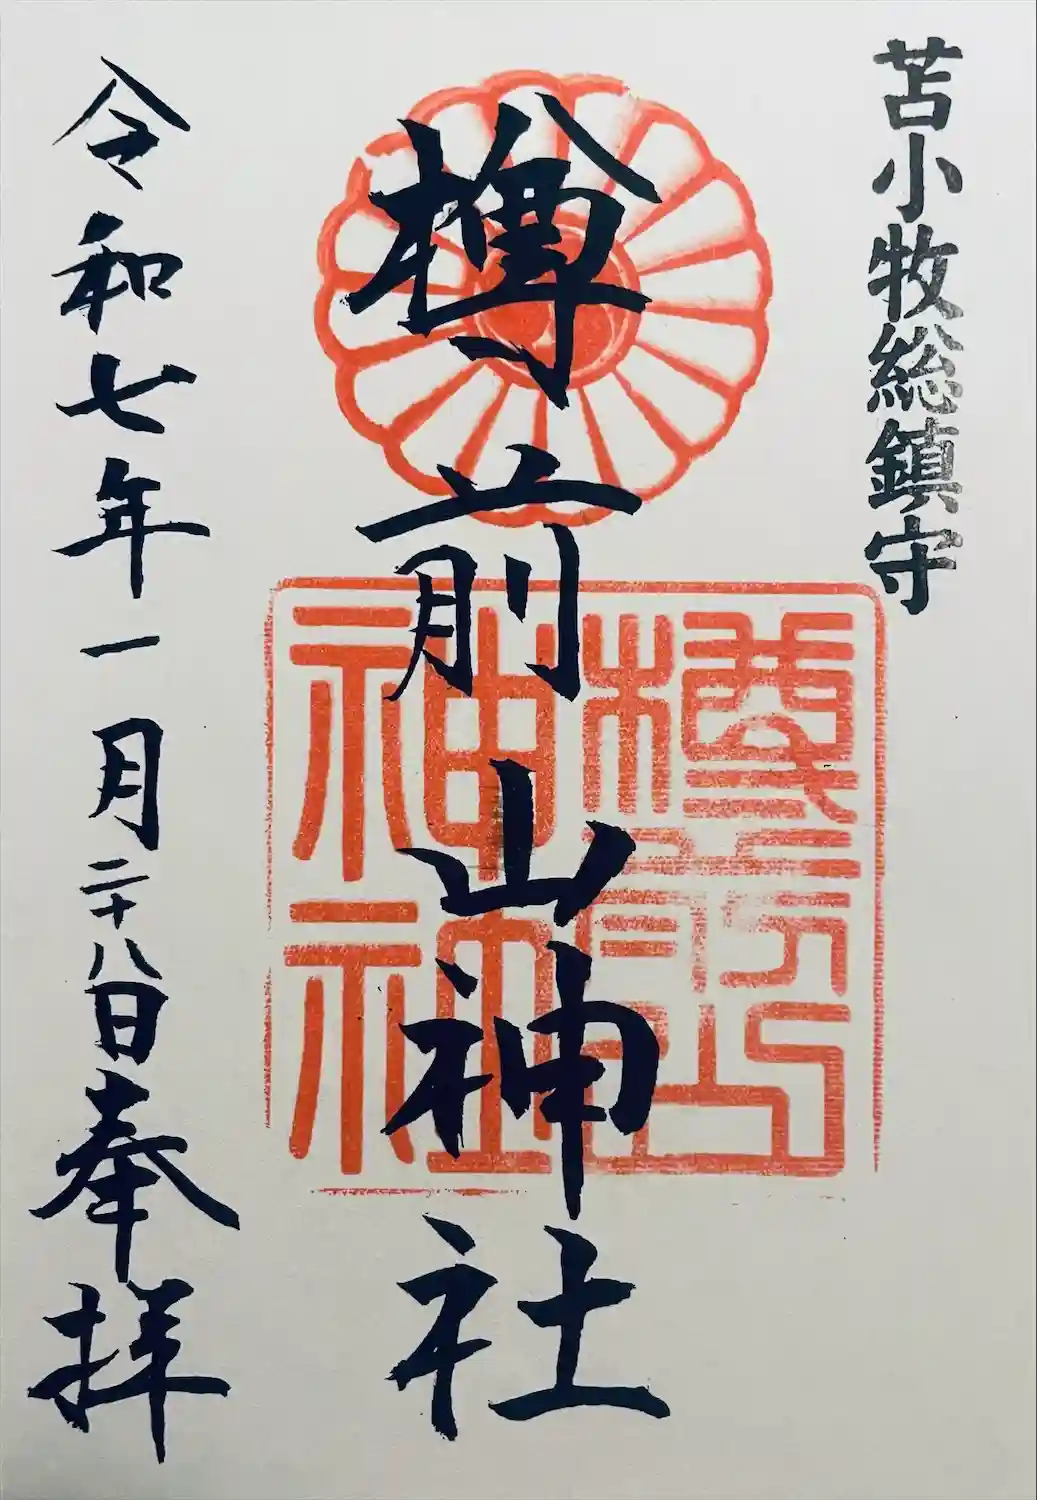 苫小牧総鎮守
樽前山神社
樽前山
神社
令和七年一月二十八日奉拝